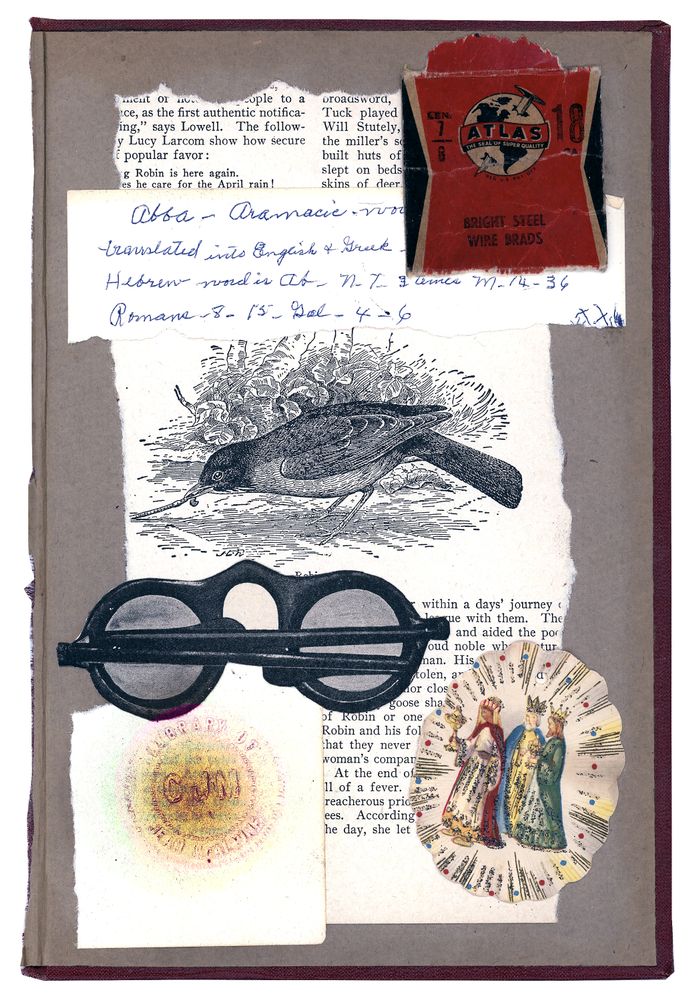 ople to a
ce, as the first authentic notifica-
ing," says Lowell. The follow-
y Lucy Larcom show how secure
f popular favor:
g Robin is here again.
es he care for the April rain!
broadsword,
Tuck played
Will Stutely,
the miller's so
built huts of
slept on beds
skins of deer,
CEN.
7
8
18
ATLAS
THE SEAL OF SUPER QUALITY
BRIGHT STEEL
WIRE BRADS
Abba - Aramacic - wo
translated into English & Greek -
Hebrew word is Ab - N. T. James M - 14 - 36
Romans - 8 - 15 - Gal - 4 - 6
Robin
r within a days' journey
gue with them. The
and aided the poo
oud noble wh
man. His
tolen, a
or clos
goose sha
of Robin or one
Robin and his fol
that they never
woman's compan
At the end of
ll of a fever.
reacherous prio
ees. According
he day, she let
LIBRARY OF
CJM